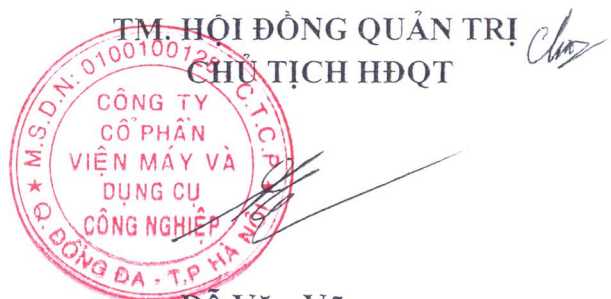 TM. HỘI ĐỒNG QUẢN TRỊ
CHỦ TỊCH HĐQT
M.S.D.N: 010010012 C.T.C.P
CÔNG TY
CỔ PHẦN
VIỆN MÁY VÀ
DỤNG CỤ
CÔNG NGHIỆP
Q. ĐỐNG ĐA - T.P HÀ NỘI